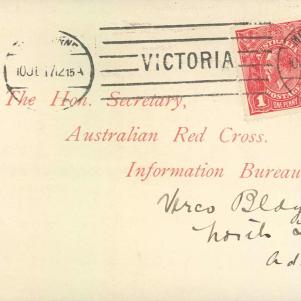 10 JL 17 12 15 A
VICTORIA
AUSTRALIA
1
ONE PENNY
POSTAGE
The Hon. Secretary,
Australian Red Cross.
Information Bureau
Verco Bldg
North
Ad